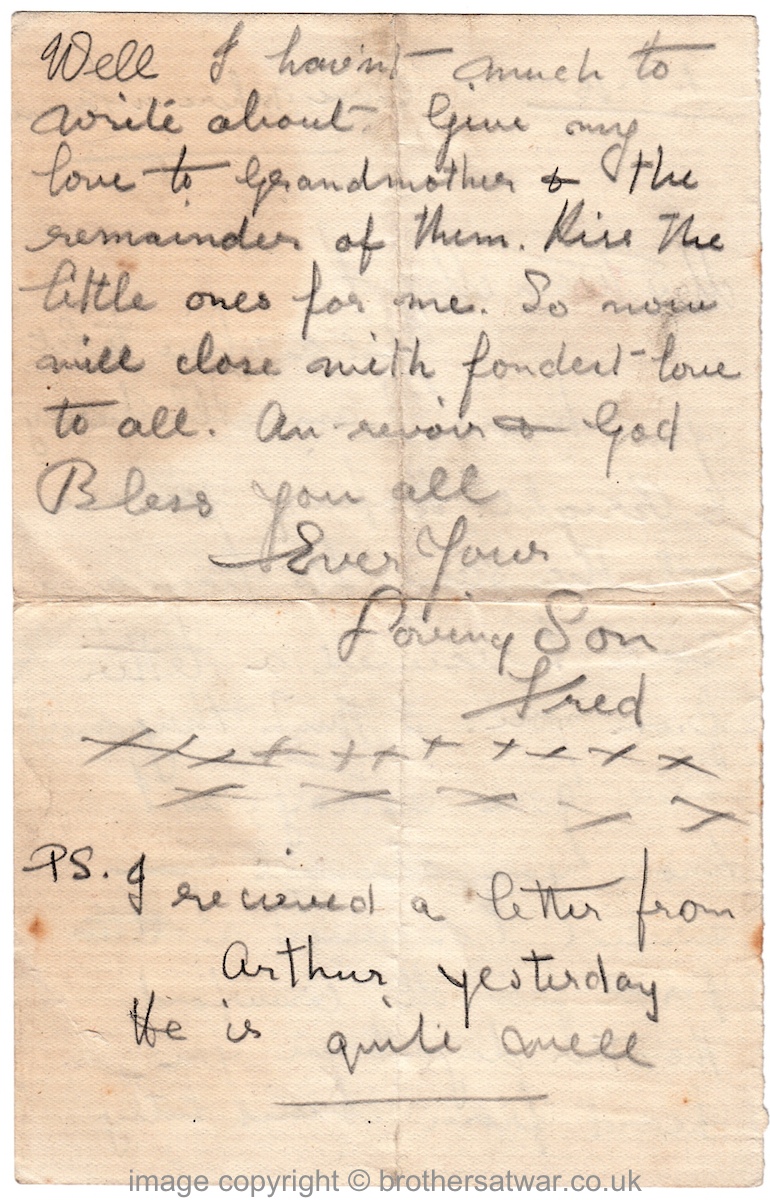 Well I havn't much to
write about. Give my
love to Grandmother & the
remainder of them. Kiss the
little ones for me. So now
will close with fondest love
to all. Au-revoir & God
Bless you all
Ever Your
Loving Son
Fred
XXXXXXXXXXXX
XXXXX
PS. I recieved a letter from
Arthur yesterday
He is quite well
image copyright © brothersatwar.co.uk